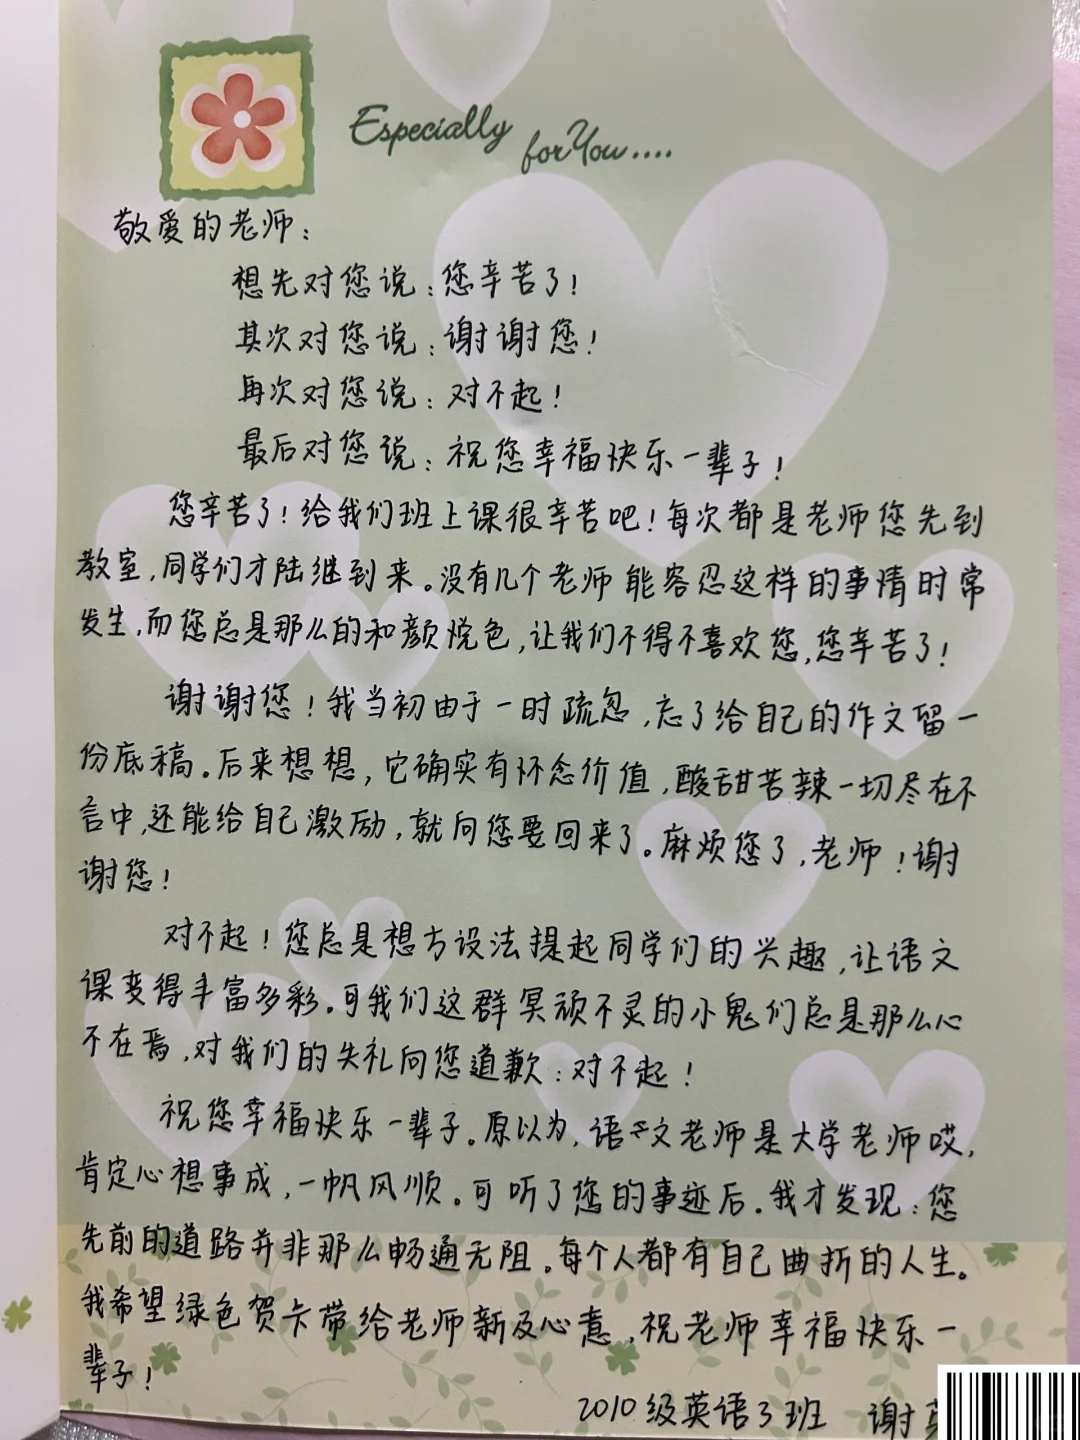 Especially
for You....
敬爱的老师：
想先对您说：您辛苦了！
其次对您说：谢谢您！
再次对您说：对不起！
最后对您说：祝您幸福快乐一辈子！
您辛苦了！给我们班上课很辛苦吧！每次都是老师您先到
教室，同学们才陆继到来。没有几个老师能容忍这样的事情时常
发生，而您总是那么的和颜悦色，让我们不得不喜欢您，您辛苦了！
谢谢您！我当初由于一时疏忽，忘了给自己的作文留一
份底稿。后来想想，它确实有怀念价值，酸甜苦辣一切尽在不
言中，还能给自己激励，就向您要回来了。麻烦您了，老师！谢
谢您！
对不起！您总是想方设法提起同学们的兴趣，让语文
课变得丰富多彩。可我们这群冥顽不灵的小鬼们总是那么心
不在焉，对我们的失礼向您道歉：对不起！
祝您幸福快乐一辈子。原以为，语文老师是大学老师哎，
肯定心想事成，一帆风顺。可听了您的事迹后。我才发现：您
先前的道路并非那么畅通无阻。每个人都有自己曲折的人生。
我希望绿色贺卡带给老师新及心意，祝老师幸福快乐一
辈子！
2010级英语3班 谢